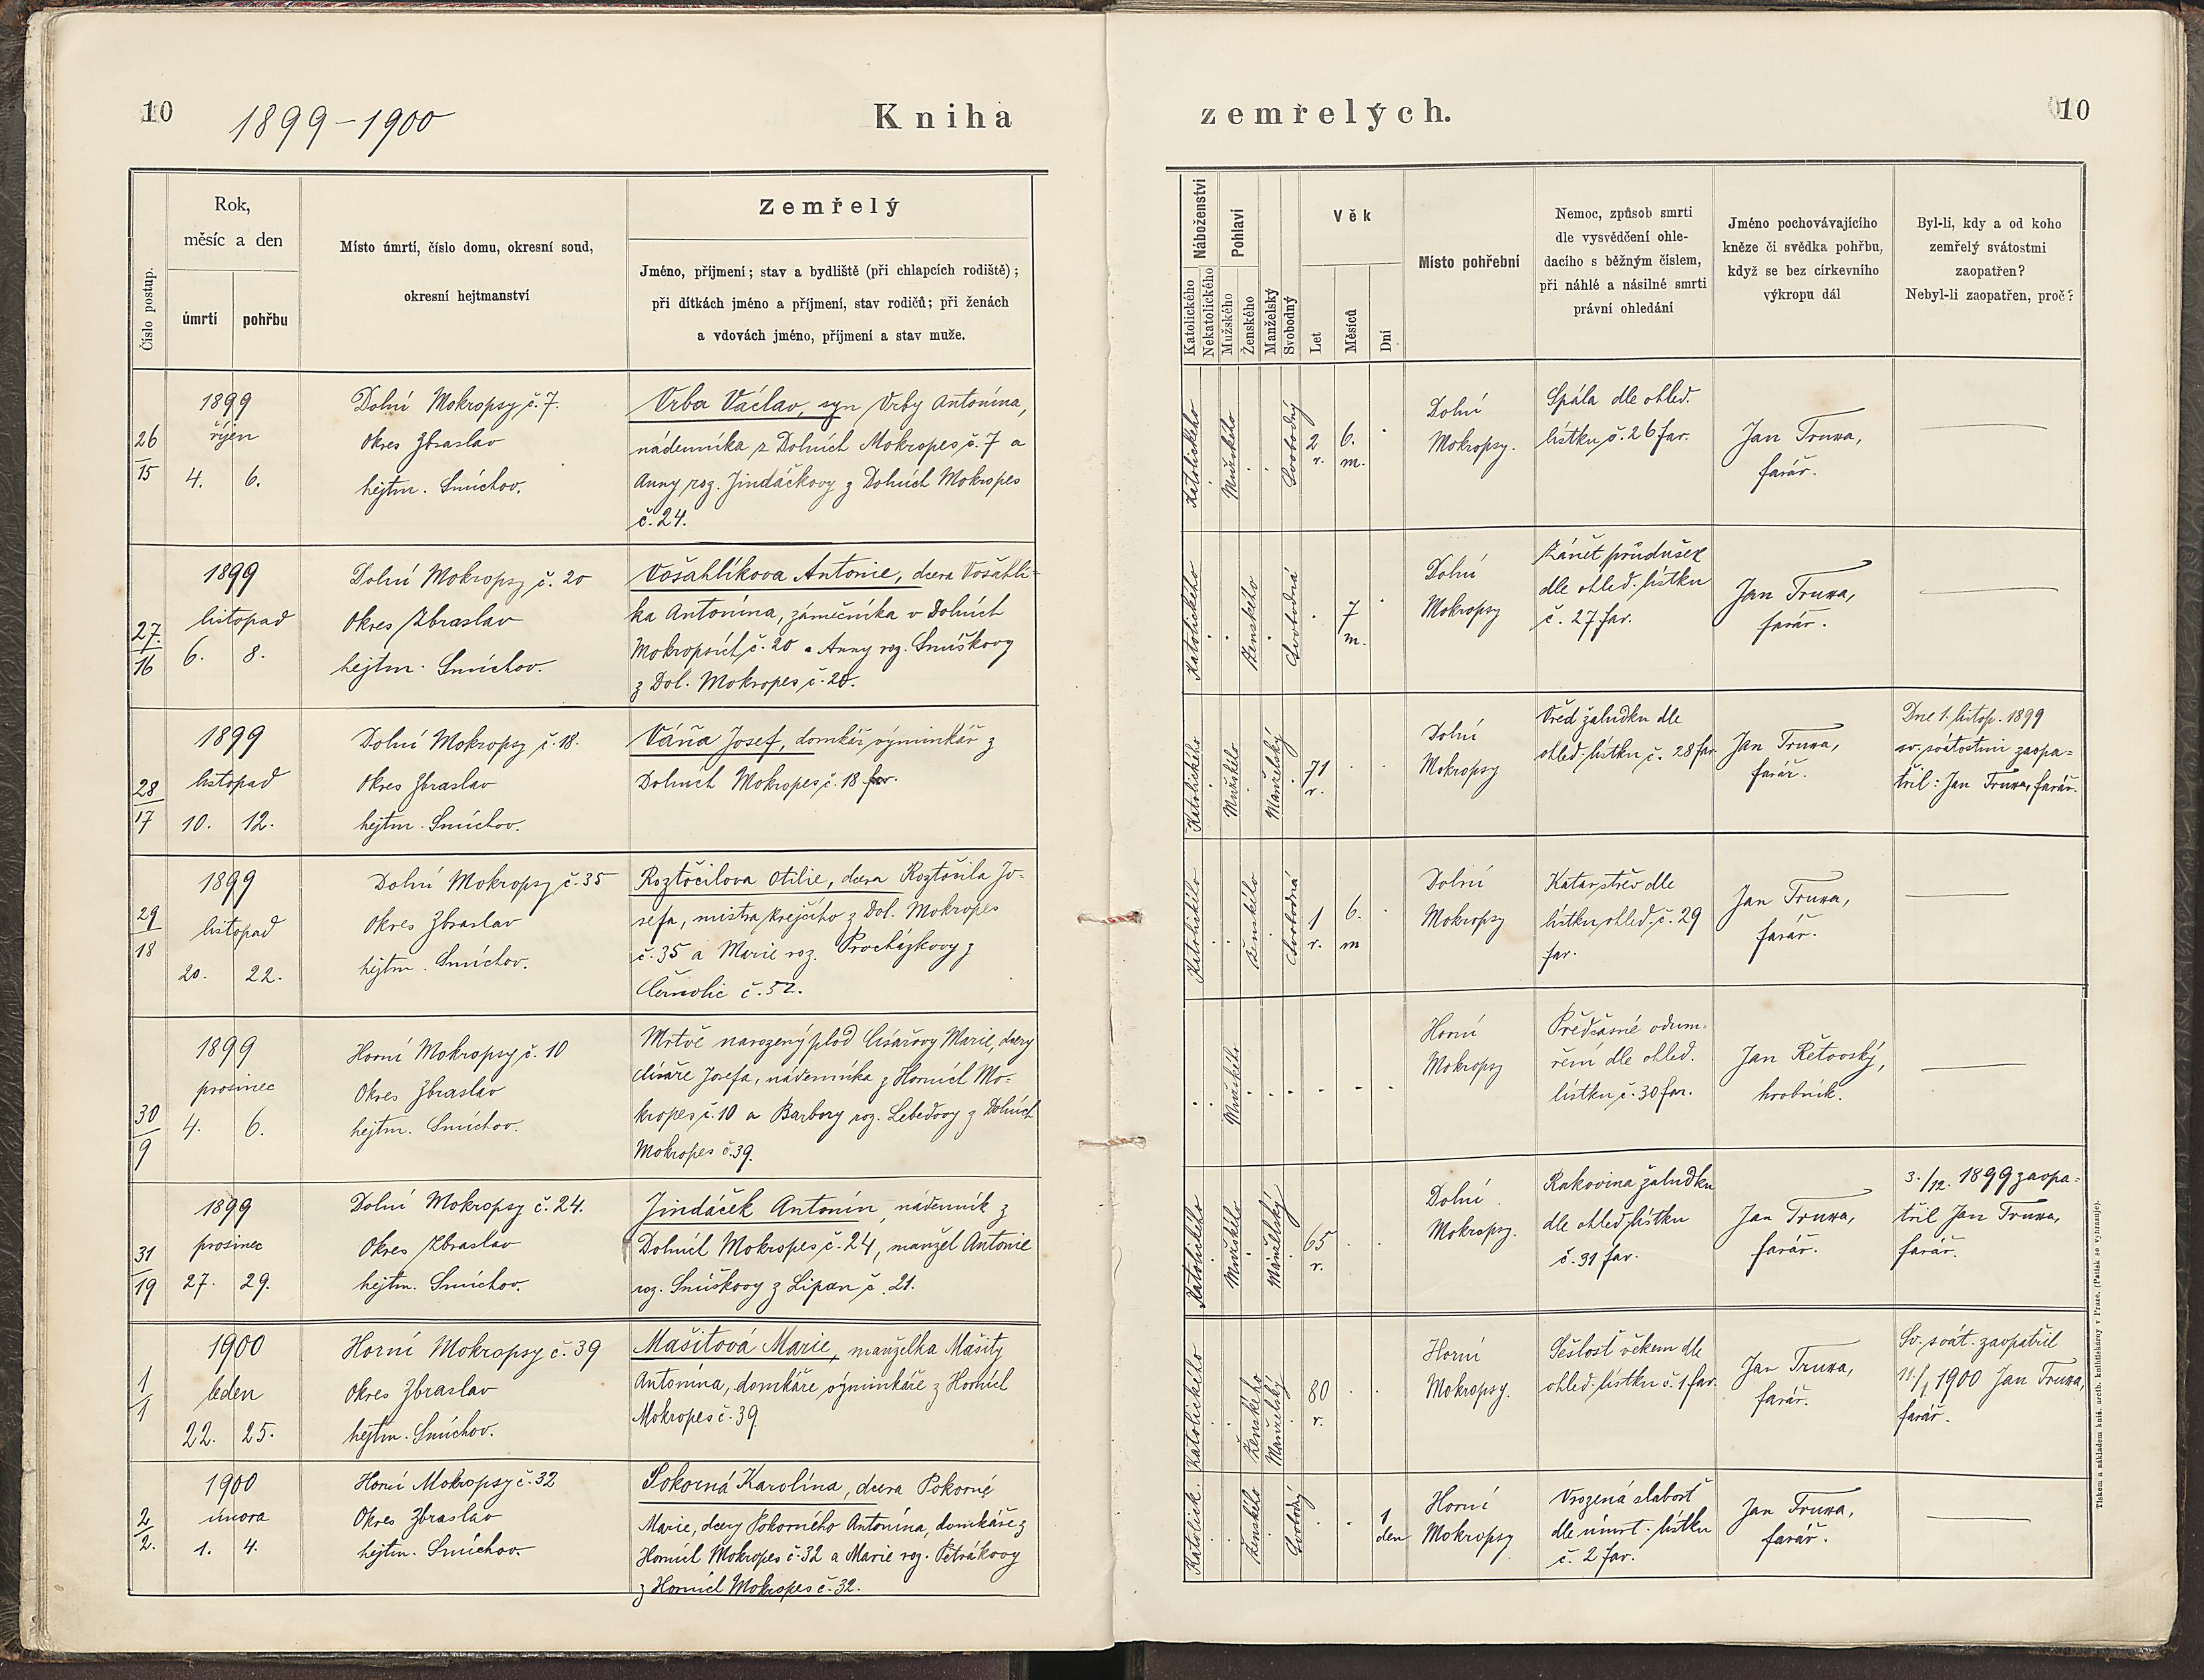 10
1899-1900
Kniha
zemřelých.
10
Číslo postup.
Rok,
měsíc a den
úmrtí
pohřbu
Místo úmrtí, číslo domu, okresní soud,
okresní hejtmanství
Zemřelý
Jméno, příjmení; stav a bydliště (při chlapcích rodiště);
při dítkách jméno a příjmení, stav rodičů; při ženách
a vdovách jméno, příjmení a stav muže.
Náboženství
Katolického
Nekatolického
Pohlaví
Mužského
Ženského
Manželský
Svobodný
Věk
Let
Měsíců
Dní
Místo pohřební
Nemoc, způsob smrti
dle vysvědčení ohle-
dacího s běžným číslem,
při náhlé a násilné smrti
právní ohledání
Jméno pochovávajícího
kněze či svědka pohřbu,
když se bez církevního
výkropu dál
Byl-li, kdy a od koho
zemřelý svátostmi
zaopatřen?
Nebyl-li zaopatřen, proč?
26
15
1899
říjen
4. 6.
Dolní Mokropsy č. 7.
Okres Zbraslav
hejtm. Smíchov.
Vrba Václav, syn Vrby Antonína,
nádenníka z Dolních Mokropes č. 7 a
Anny roz. Jindáčkovy z Dolních Mokropes
č. 24.
Katolického
Mužského
Svobodný
2
r.
6.
m.
Dolní
Mokropsy.
Spála dle ohled.
lístku č. 26 far.
Jan Truxa,
farář.
27
16
1899
listopad
6. 8.
Dolní Mokropsy č. 20
Okres Zbraslav
hejtm. Smíchov.
Vošahlíkova Antonie, dcera Vošahlí-
ka Antonína, zámečníka v Dolních
Mokropsích č. 20 a Anny roz. Smíškovy
z Dol. Mokropes č. 20.
Katolického
Ženského
Svobodná
7
m.
Dolní
Mokropsy
Zánět průdušek
dle ohled. lístku
č. 27 far.
Jan Truxa,
farář.
28
17
1899
listopad
10. 12.
Dolní Mokropsy č. 18.
Okres Zbraslav
hejtm. Smíchov.
Váňa Josef, domkář výminkář z
Dolních Mokropes č. 18 far.
Katolického
Mužského
Manželský
71
r.
Dolní
Mokropsy
Vřed žaludku dle
ohled. lístku č. 28 far.
Jan Truxa,
farář.
Dne 1. listop. 1899
sv. svátostmi zaopa-
třil: Jan Truxa, farář.
29
18
1899
listopad
20. 22.
Dolní Mokropsy č. 35
Okres Zbraslav
hejtm. Smíchov.
Roztočilova Otilie, dcera Roztočila Jo-
sefa, mistra krejčího z Dol. Mokropes
č. 35 a Marie roz. Procházkovy z
Černolic č. 52.
Katolického
Ženského
Svobodná
1
r.
6.
m
Dolní
Mokropsy
Katar střev dle
lístku ohled. č. 29
far.
Jan Truxa,
farář.
30
9
1899
prosinec
4. 6.
Horní Mokropsy č. 10
Okres Zbraslav
hejtm. Smíchov.
Mrtvě narozený plod Císařovy Marie, dcery
Císaře Josefa, nádenníka z Horních Mo-
kropes č. 10 a Barbory roz. Lebedovy z Dolních
Mokropes č. 39.
Mužského
Horní
Mokropsy
Předčasné odum-
ření dle ohled.
lístku č. 30 far.
Jan Řetovský,
hrobník.
31
19
1899
prosinec
27. 29.
Dolní Mokropsy č. 24.
Okres Zbraslav
hejtm. Smíchov.
Jindáček Antonín, nádenník z
Dolních Mokropes č. 24, manžel Antonie
roz. Smíškovy z Lipan č. 21.
Katolického
Mužského
Manželský
65
r.
Dolní
Mokropsy.
Rakovina žaludku
dle ohled. lístku
č. 31 far.
Jan Truxa,
farář.
3./12. 1899 zaopa-
třil Jan Truxa,
farář.
1
1
1900
leden
22. 25.
Horní Mokropsy č. 39
Okres Zbraslav
hejtm. Smíchov.
Mašitová Marie, manželka Mašity
Antonína, domkáře výminkáře z Horních
Mokropes č. 39
Katolického
Ženského
Manželský
80
r.
Horní
Mokropsy.
Sešlost věkem dle
ohled. lístku č. 1 far.
Jan Truxa,
farář.
Sv. svát. zaopatřil
11./1 1900 Jan Truxa,
farář.
2
2.
1900
února
1. 4.
Horní Mokropsy č. 32
Okres Zbraslav
hejtm. Smíchov.
Pokorná Karolína, dcera Pokorné
Marie, dcery Pokorného Antonína, domkáře z
Horních Mokropes č. 32 a Marie roz. Petrákovy
z Horních Mokropes č. 32.
Katolick.
Ženského
Svobodný
1
den
Horní
Mokropsy
Vrozená slabost
dle úmrt. lístku
č. 2 far.
Jan Truxa,
farář.
Tiskem a nákladem kníž. arcib. knihtiskárny v Praze. (Patisk se vyhrazuje).